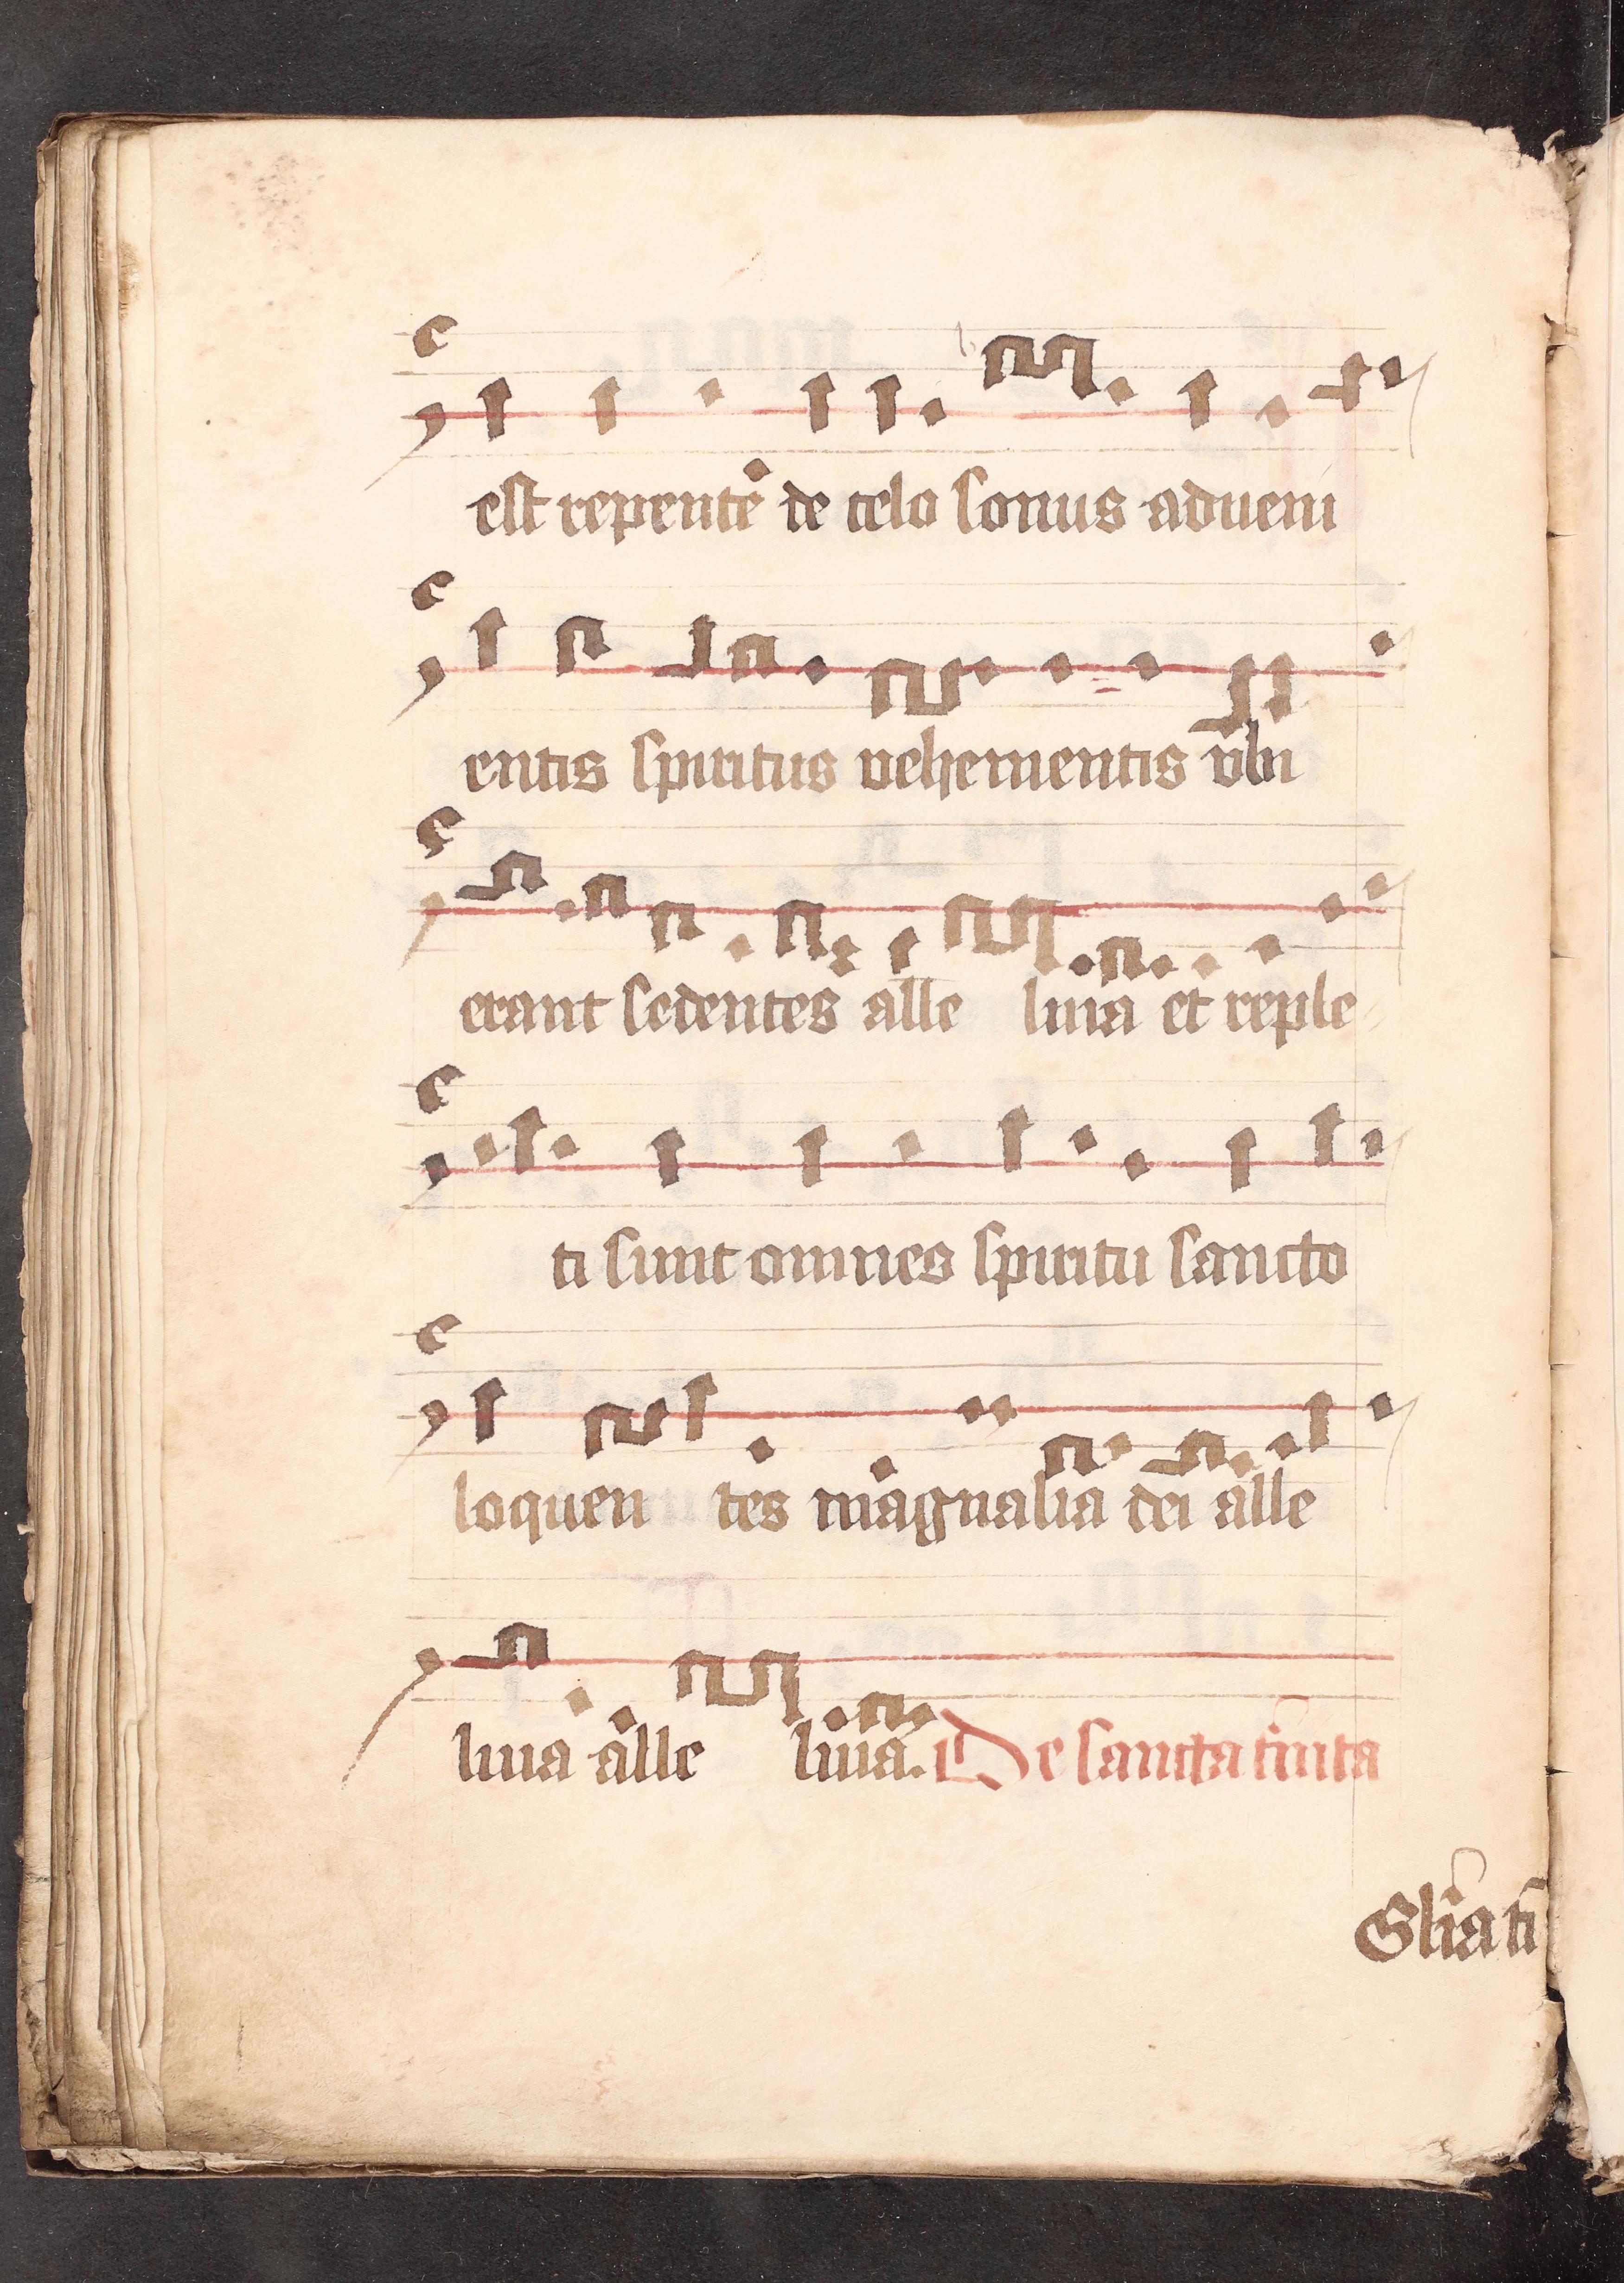 est repente de celo sonus adveni
entis spiritus vehementis vbi
erant sedentes alle luia et reple
ti sunt omnes spiritu sancto
loquen tes magnalia dei alle
luia alle luia. De sancta t̄nita
Gl̄ia ti